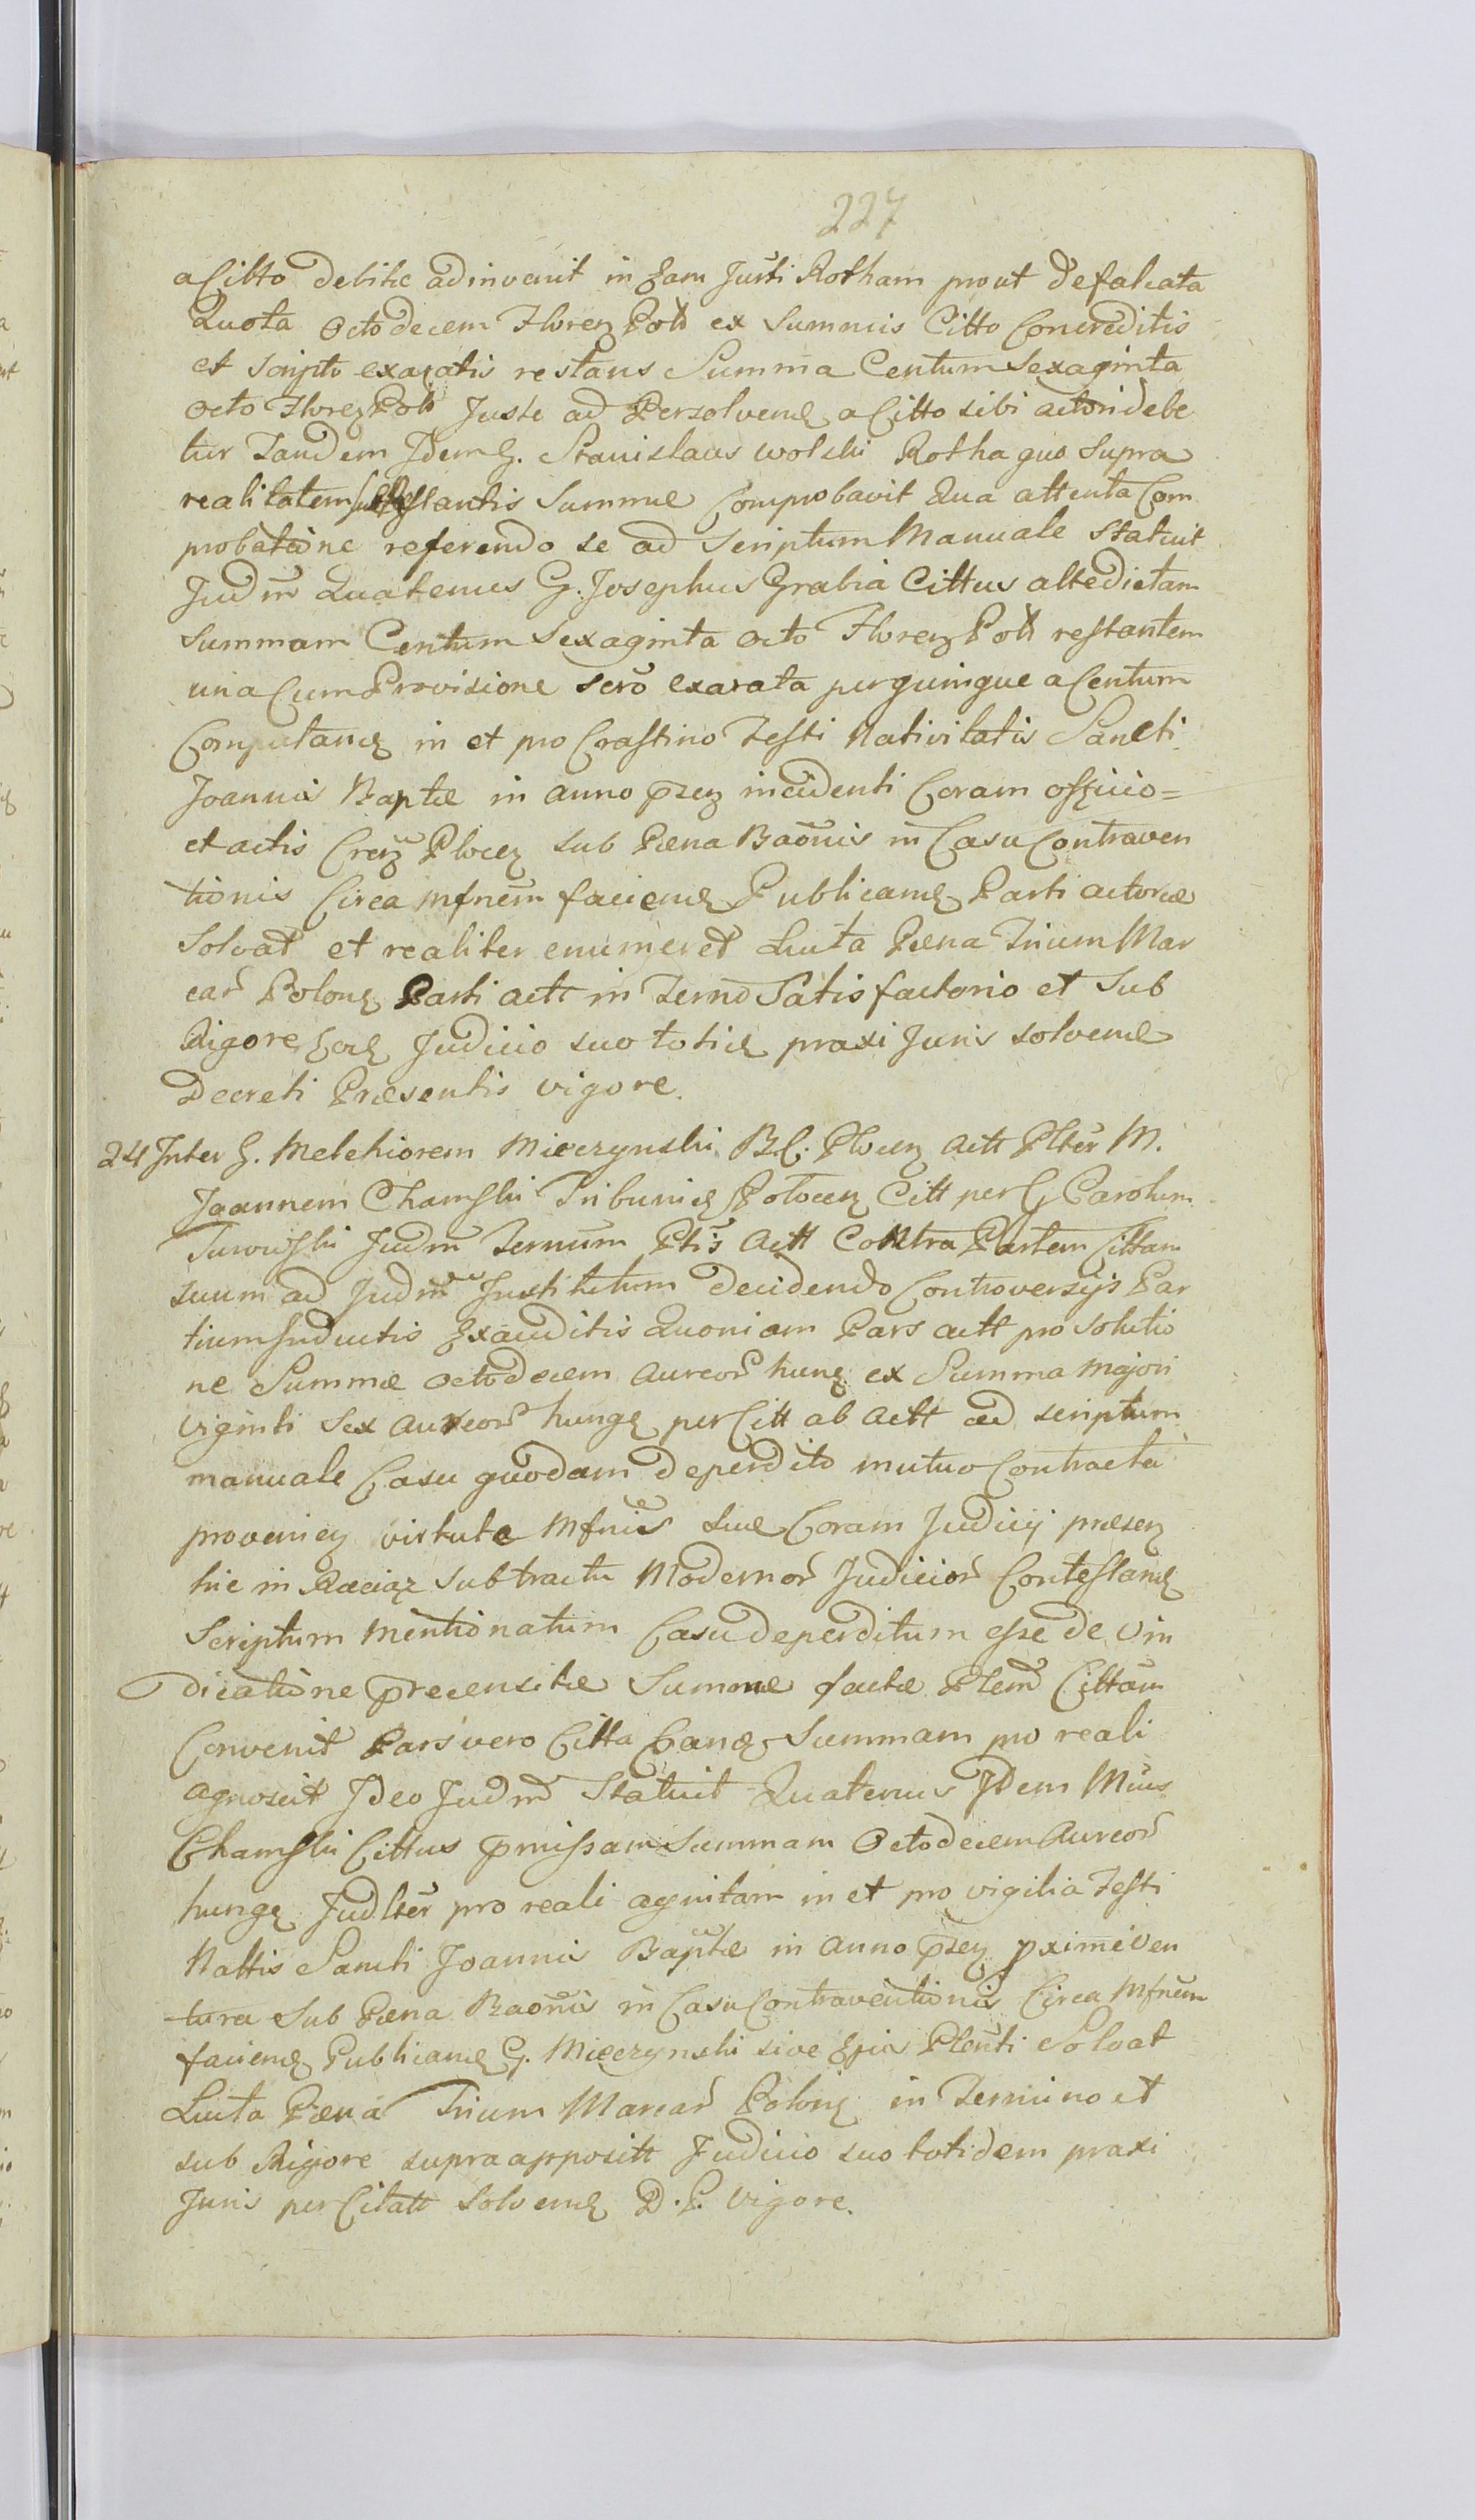 227
a Citto debitæ adinvenit in Eam Justi Rotham prout defalcata
Quota Octodecem Floren Poll ex Summis Citto Concreditis
et scripto exaratis restans Summa Centum Sexaginta
Octo Floren Poll Juste ad Persolvend a Citto sibi actori debe
tur Tandem Idem G. Stanislaus Wolski Rotha quo supra
realitatem restantis Summæ Comprobavit Qua attenta Com
probatione referendo se ad Scriptum Manuale Statuit
Judm Quatenus G. Josephus Grabia Cittus altedictam
Summam Centum Sexaginta Octo Floren Poll restantem
una Cum Provisione sero exarata per quinque a Centum
Computand in et pro Crastino Festi Nativitatis Sancti
Joannis Baptæ in anno præsen incidenti Coram officio=
et actis Cren Plocen sub Pæna Baonis in Casu Contraven
tionis Circa Mfnem faciend Publicand Parti actoreæ
Solvat et realiter enumeret Luita Pæna Trium Mar
car Polon Parti actt in Termo Satisfactorio et sub
Rigore Judicio suo totid praxi Juris solvend
Decreti Præsentis vigore.
24 Inter G. Melchiorem Mieczynski B.C. Plocen Actt Plter M.
Joannem Chamski Tribunid Plocen Citt per G Carolum
Turowski Judm Termum Ptis Actt Contra Partem Cittam
suum ad Judm Institutum decidendo Controversijs Par
tium Inductis Exauditis Quoniam Pars actt pro Solutio
ne Summæ Octodecem Aureor hung ex Summa Majori
viginti Sex Aureor hung per Citt ab Actt ad scriptum
manuale Casu quodam deperdito mutuo Contracta
provenien virtute Mfnis suæ Coram Judicij præsen
hic in Raciaz sub tractu Modernor Judicior Contestand
Scriptum mentionatum Casu deperditum esse de Vin
dicatione præcensitæ Summæ factæ Ptem Cittam
Convenit Pars vero Citta Eand Summam pro reali
agnoscit Ideo Judm Statuit Quatenus Idem Mcus
Chamski Cittus præmissam Summam Octodecem Aureor
hung Judlter pro reali agnitam in et pro vigilia Festi
Nattis Sancti Joannis Baptæ in Anno præsen pxime ven
tura Sub Pæna Baonis in Casu Contraventionis Circa Mfnem
faciend Publicand G. Mieczynski sive Ejus Plenti Solvat
Luita Pæna Trium Marcar Polon in Termino et
sub Rigore supra apposit Judicio suo totidem praxi
Juris per Citatt Solvend D. P. vigore.